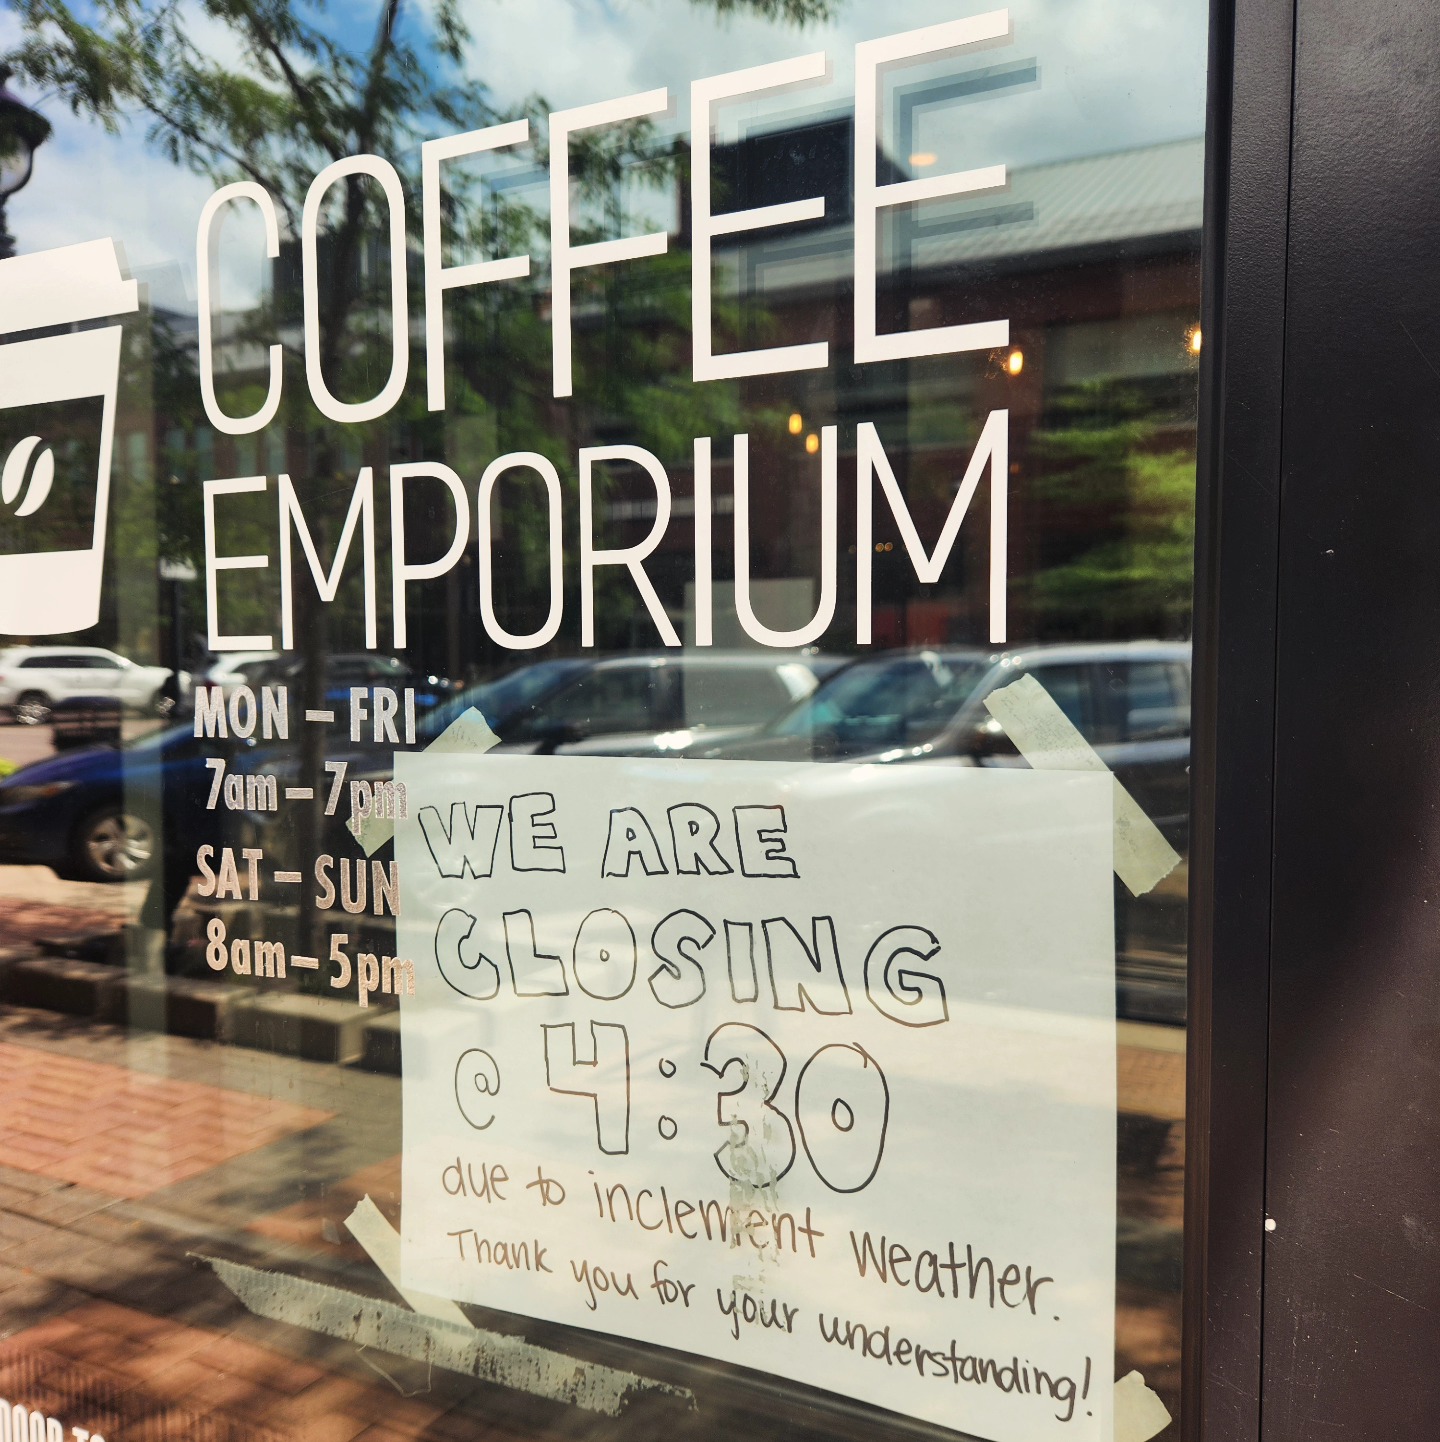 COFFEE
EMPORIUM
MON – FRI
7am – 7pm
SAT – SUN
8am – 5pm
WE ARE
CLOSING
@ 4:30
due to inclement weather.
Thank you for your understanding!